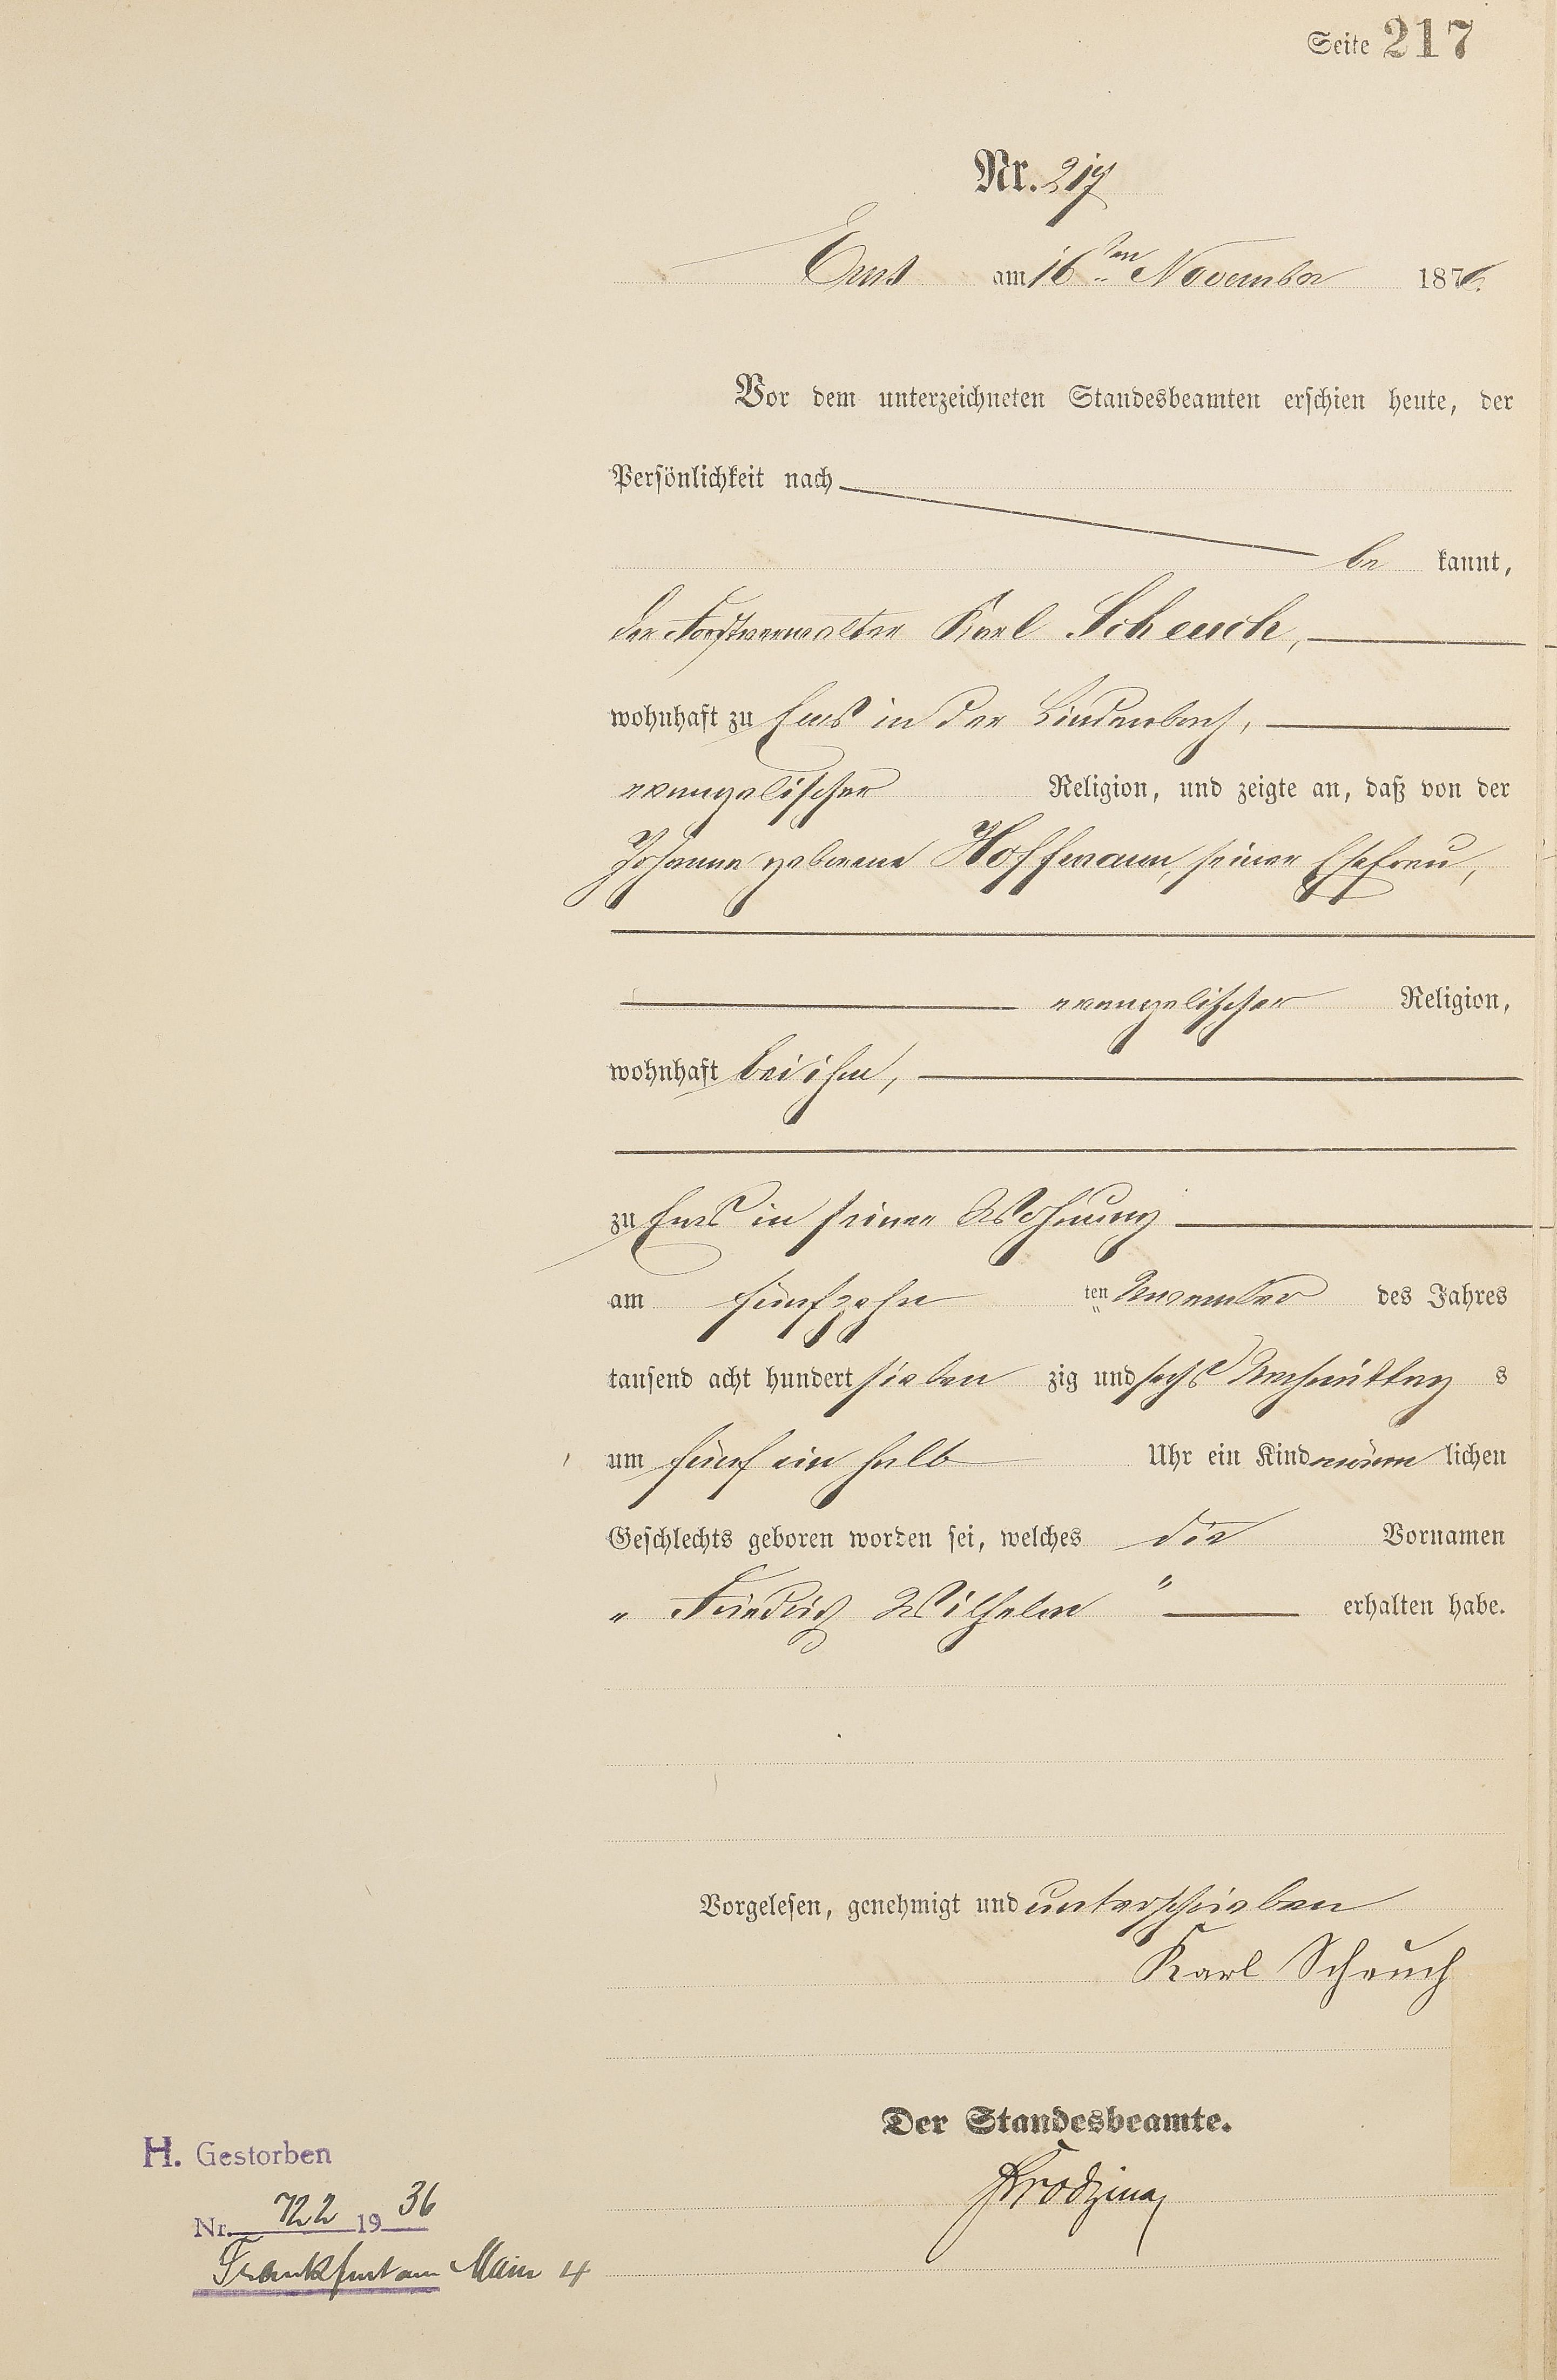 Seite 217
Nr. 217
Ems am 16ten November 1876.
Vor dem unterzeichneten Standesbeamten erschien heute, der
Persönlichkeit nach
be kannt,
der Forstverwalter Karl Scheuch,
wohnhaft zu Ems in der Lindenbach,
evangelischer Religion, und zeigte an, daß von der
Johanna geborene Hoffmann, seiner Ehefrau,
evangelischer Religion,
wohnhaft bei ihm,
zu Ems in seiner Wohnung
am fünfzehn ten November des Jahres
tausend acht hundert sieben zig und sechs Nachmittag s
um fünf ein halb Uhr ein Kind männ lichen
Geschlechts geboren worden sei, welches die Vornamen
" Friedrich Wilhelm " erhalten habe.
Vorgelesen, genehmigt und unterschrieben
Karl Scheuch
Der Standesbeamte.
H. Gestorben
Nr. 722 1936
Frankfurt am Main 4